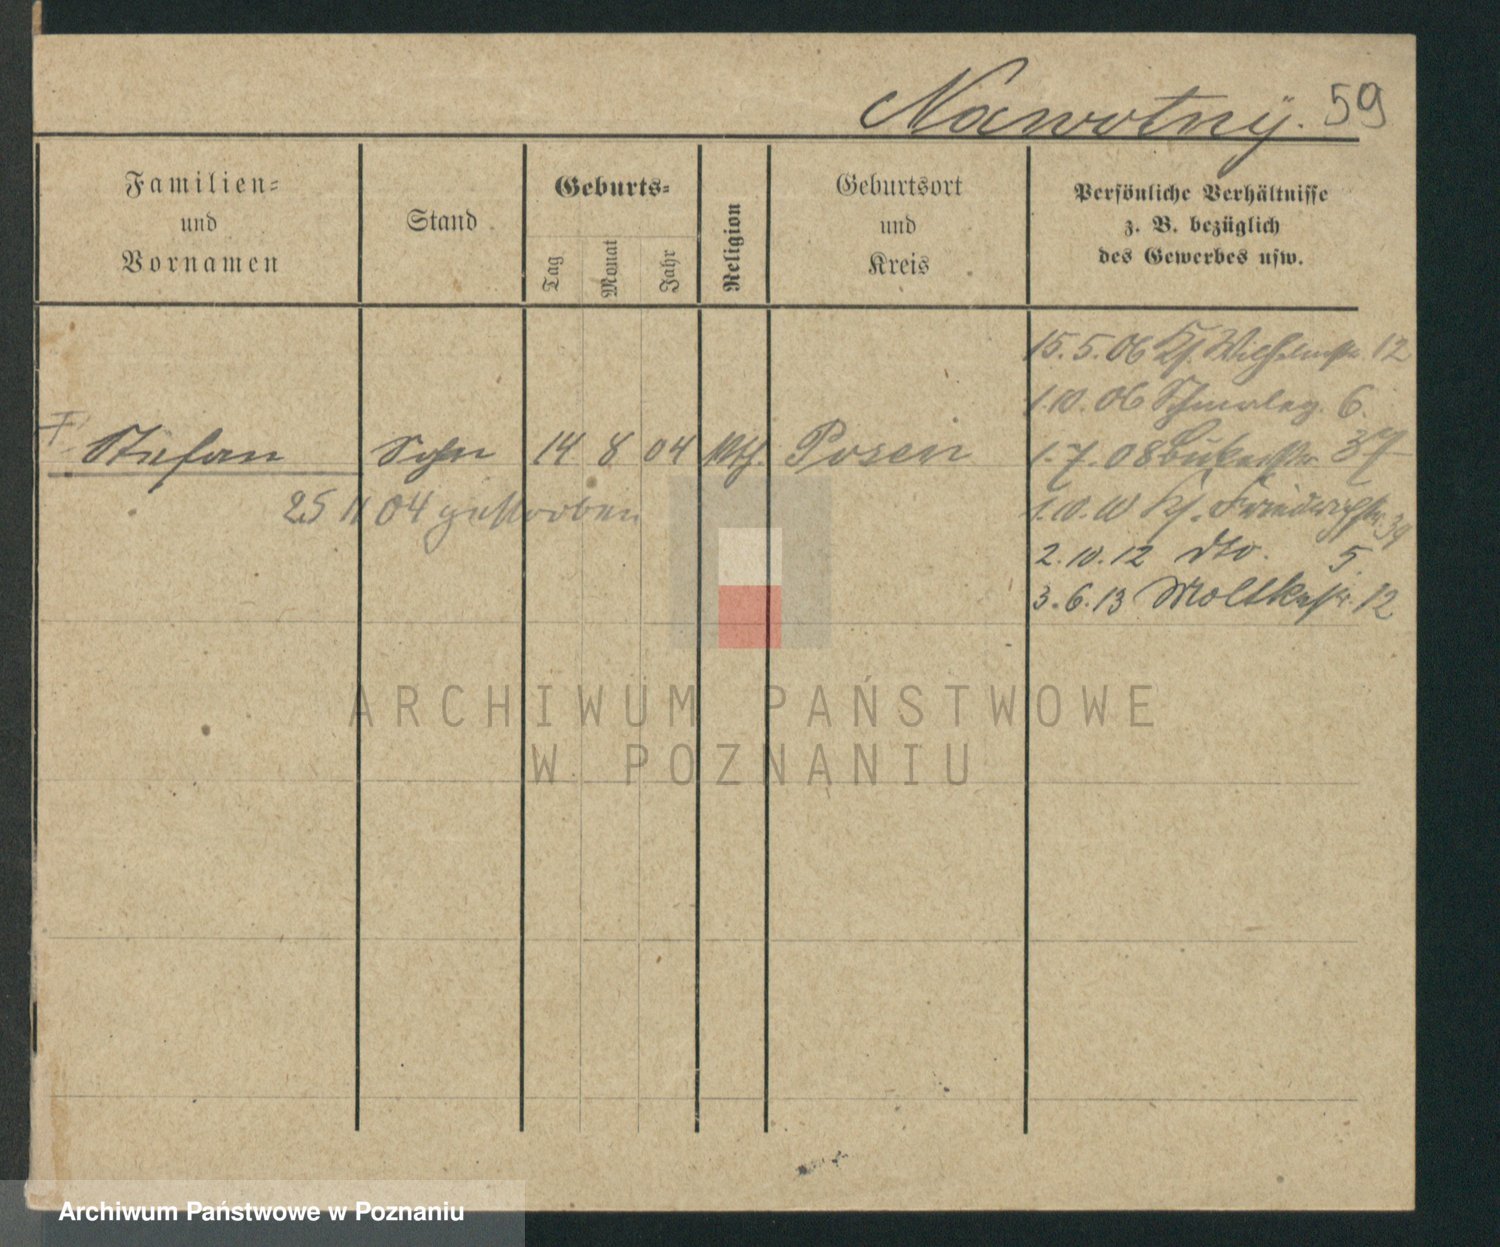 Nawotny. 59
Familien=
und
Vornamen
Stand
Geburts=
Tag
Monat
Jahr
Religion
Geburtsort
und
Kreis
Persönliche Verhältnisse
z. B. bezüglich
des Gewerbes usw.
15. 5. 06 Kl. Wilhelmstr. 12
1. 10. 06 6.
Stefan Sohn 14 8 04 kth. Posen
1. 7. 08 Bukerstr. 37
25 11 04 gestorben
1. 10. 10 Kl. Friedrichstr. 39
2. 10. 12 dto. 5
3. 6. 13 Moltkestr. 12
ARCHIWUM PAŃSTWOWE
W POZNANIU
Archiwum Państwowe w Poznaniu